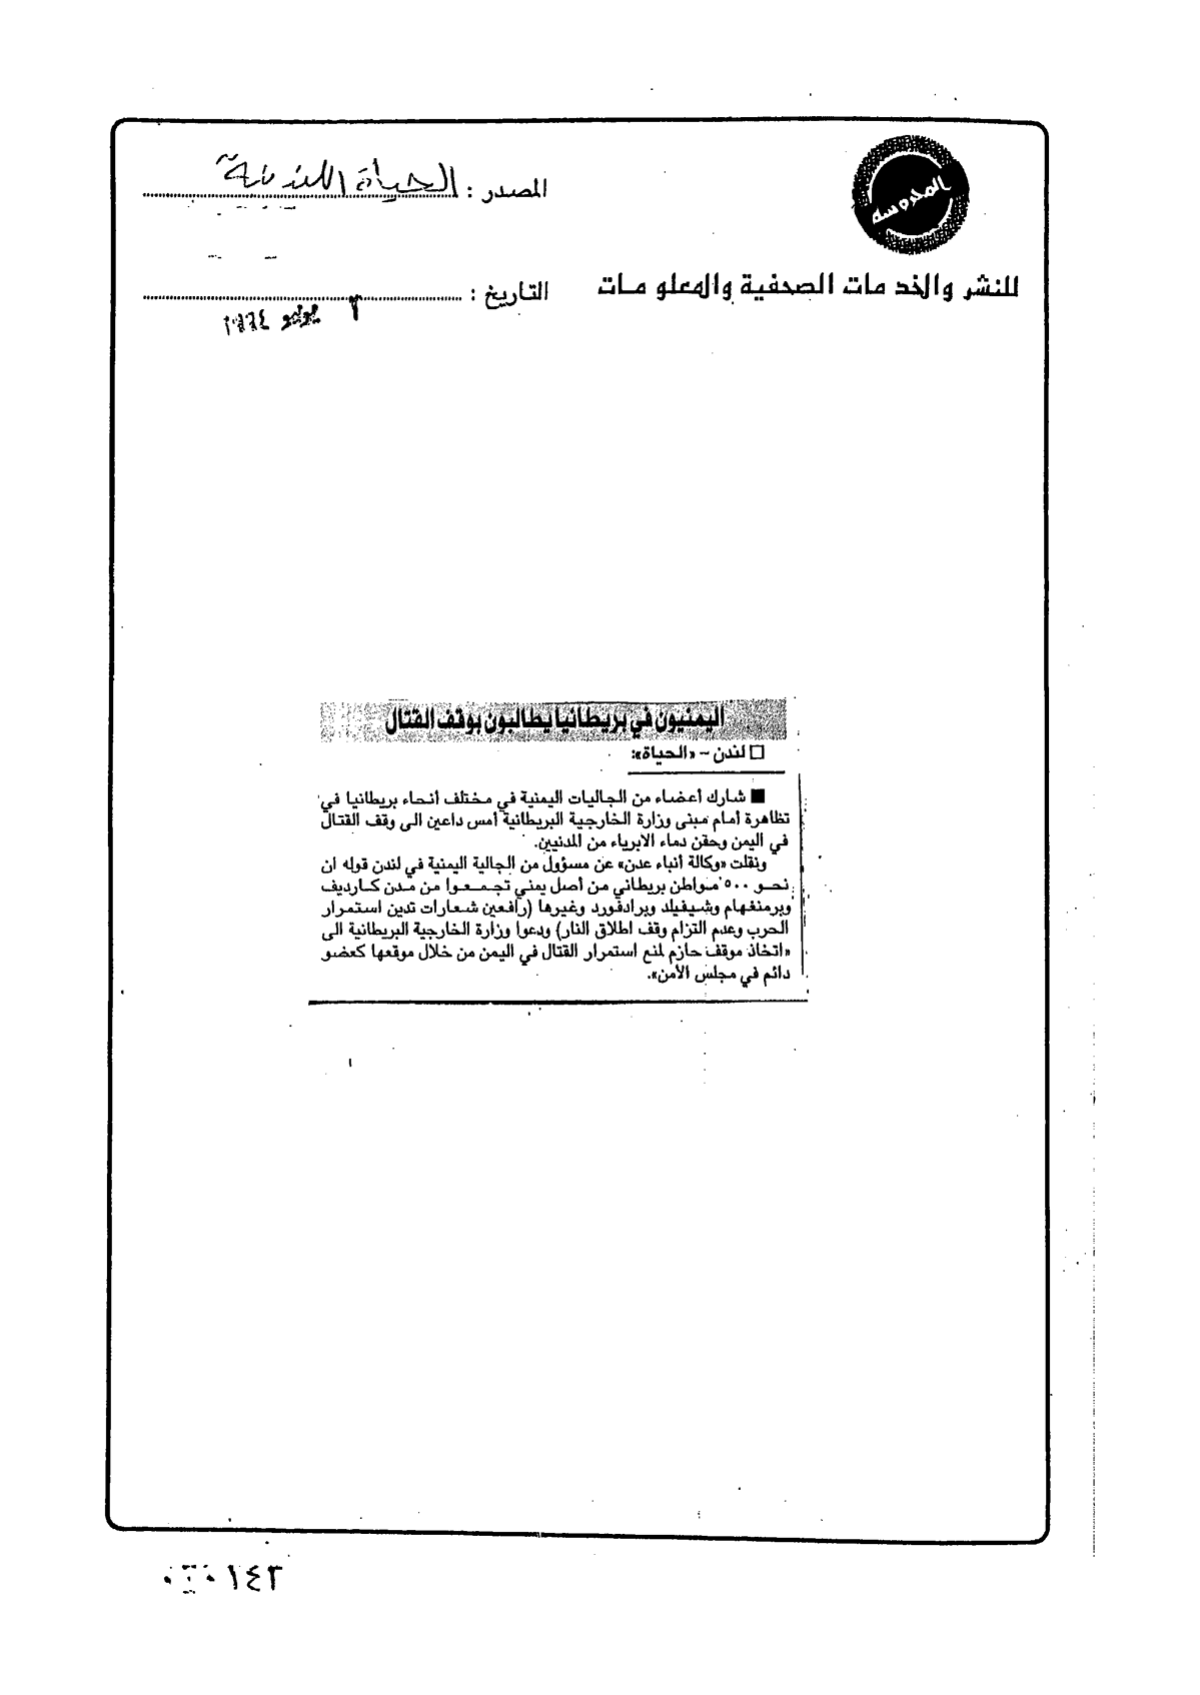 المحروسة
المصدر : الحياة اللندنية
للنشر والخدمات الصحفية والمعلومات
التاريخ :
٢ يونيو ١٩٩٤
اليمنيون في بريطانيا يطالبون بوقف القتال
□ لندن – «الحياة»:
■ شارك أعضاء من الجاليات اليمنية في مختلف أنحاء بريطانيا في
تظاهرة أمام مبنى وزارة الخارجية البريطانية أمس داعين الى وقف القتال
في اليمن وحقن دماء الابرياء من المدنيين.
ونقلت «وكالة أنباء عدن» عن مسؤول من الجالية اليمنية في لندن قوله ان
نحو ٥٠٠ مواطن بريطاني من أصل يمني تجمعوا من مدن كارديف
وبرمنغهام وشيفيلد وبرادفورد وغيرها (رافعين شعارات تدين استمرار
الحرب وعدم التزام وقف اطلاق النار) ودعوا وزارة الخارجية البريطانية الى
«اتخاذ موقف حازم لمنع استمرار القتال في اليمن من خلال موقعها كعضو
دائم في مجلس الأمن».